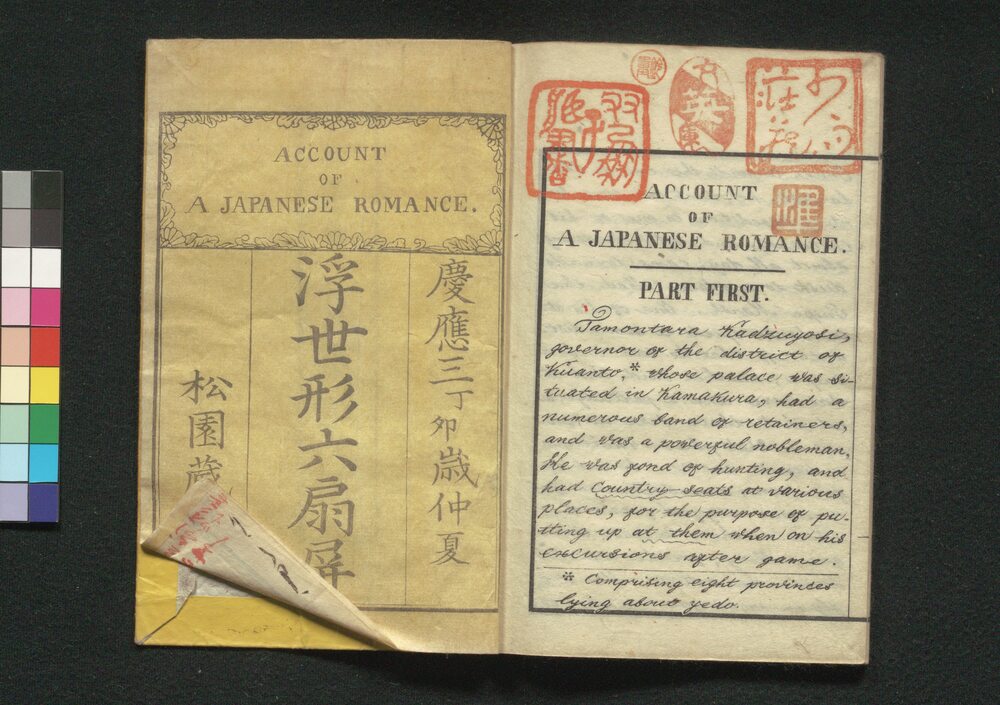 ACCOUNT
OF
A JAPANESE ROMANCE.
慶應三丁卯歳仲夏
浮世形六扇屏
松園蔵
ACCOUNT
OF
A JAPANESE ROMANCE.
PART FIRST.
Tamontara Kadzuyosi,
governor of the district of
Kuanto,* whose palace was si-
tuated in Kamakura, had a
numerous band of retainers,
and was a powerful nobleman.
He was fond of hunting, and
had Country-seats at various
places, for the purpose of pu-
tting up at them when on his
excursions after game.
* Comprising eight provinces
lying about yedo.